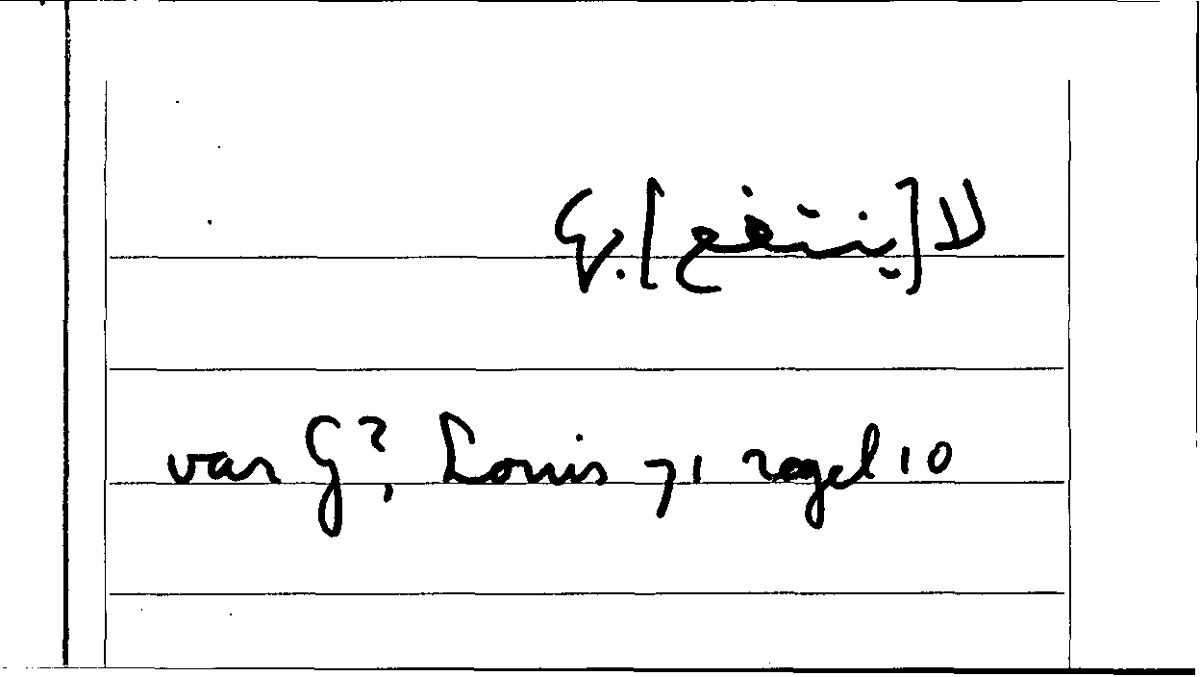 لا [ينتفع] به.
var G?, Louis 71 regel 10